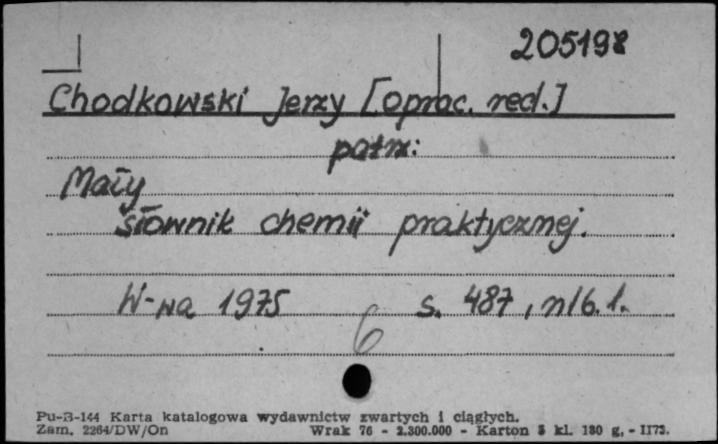 205198
Chodkowski Jerzy [oprac. red.]
patrz:
Mały
słownik chemii praktycznej.
W-wa 1975 s. 487, nlb. 1.
6
Pu-B-144 Karta katalogowa wydawnictw zwartych i ciągłych.
Zam. 2264/DW/On Wrak 76 - 2.300.000 - Karton 3 kl. 180 g. - II73.